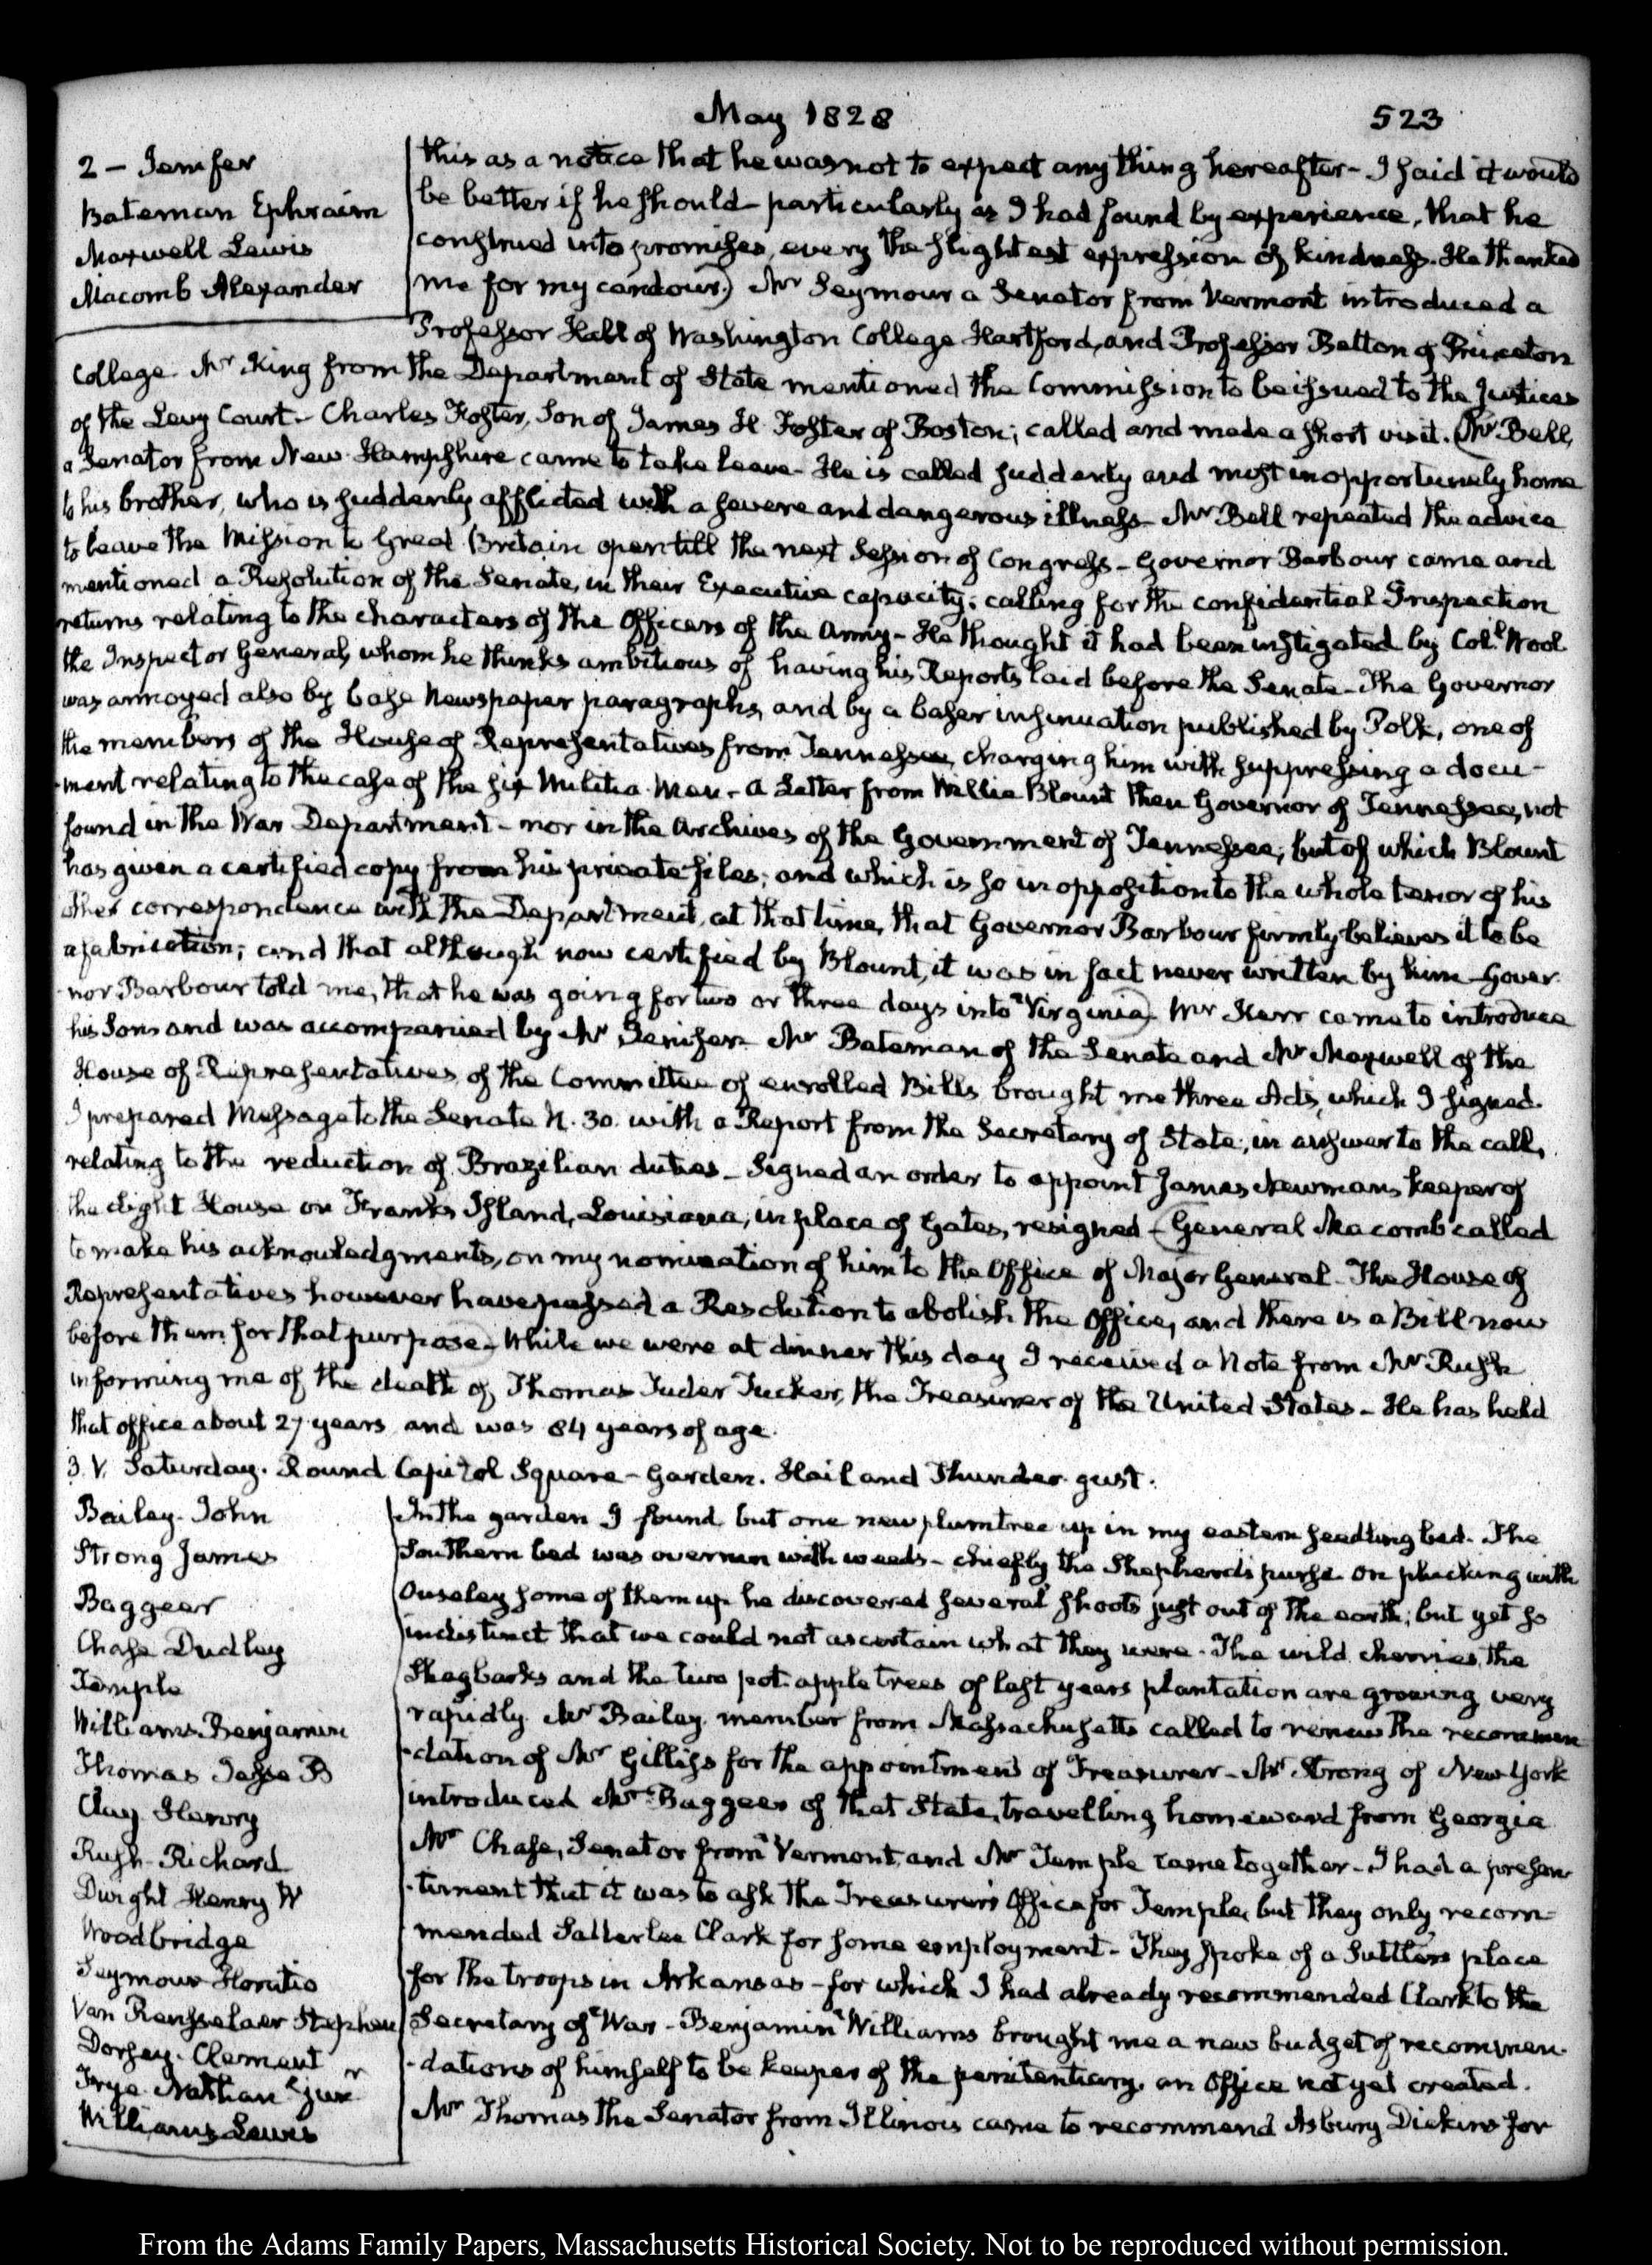 May 1828
523
2 — Jenifer
Bateman Ephraim
Maxwell Lewis
Macomb Alexander
this as a notice that he was not to expect any thing hereafter - I said it would
be better if he should - particularly as I had found by experience, that he
construed into promises, every the slightest expression of kindness. He thanked
me for my candour.) Mr Seymour a Senator from Vermont introduced a
Professor Hall of Washington College Hartford, and Professor Belton of Princeton
College. Mr King from the Department of State mentioned the Commission to be issued to the Justices
of the Levy Court - Charles Foster, Son of James H Foster of Boston; called and made a short visit. (Mr Bell,
a Senator from New-Hampshire came to take leave - He is called suddenly and most inopportunely home
to his brother, who is suddenly afflicted with a severe and dangerous illness - Mr Bell repeated the advice
to leave the Mission to Great Britain open till the next Session of Congress - Governor Barbour came and
mentioned a Resolution of the Senate, in their Executive capacity; calling for the confidential Inspection
returns relating to the characters of the Officers of the Army - He thought it had been instigated by Coll. Wool
the Inspector General, whom he thinks ambitious of having his Reports laid before the Senate - The Governor
was annoyed also by base Newspaper paragraphs, and by a baser insinuation published by Polk, one of
the members of the House of Representatives from Tennessee, charging him with suppressing a docu-
-ment relating to the case of the six Militia-Men - a Letter from Willie Blount then Governor of Tennessee, not
found in the War Department - nor in the Archives of the Government of Tennessee; but of which Blount
has given a certified copy from his private files; and which is so in opposition to the whole tenor of his
other correspondence with the Department, at that time, that Governor Barbour firmly believes it to be
a fabrication; and that although now certified by Blount, it was in fact never written by him - Gover-
nor Barbour told me, that he was going for two or three days into Virginia). Mr Kerr came to introduce
his Sons and was accompanied by Mr Jenifer. Mr Bateman of the Senate and Mr Maxwell of the
House of Representatives, of the Committee of enrolled Bills, brought me three Acts, which I signed.
I prepared Message to the Senate N. 30. with a Report from the Secretary of State; in answer to the call,
relating to the reduction of Brazilian duties - Signed an order to appoint James Newman keeper of
the Light House on Franks Island, Louisiana; in place of Gates, resigned - (General Macomb called
to make his acknowledgments, on my nomination of him to the Office of Major General - The House of
Representatives however have passed a Resolution to abolish the Office, and there is a Bill now
before them for that purpose). While we were at dinner this day I received a Note from Mr Rush
informing me of the death of Thomas Tuder Tucker, the Treasurer of the United States - He has held
that office about 27 years and was 84 years of age.
3. V. Saturday. Round Capitol Square - Garden. Hail and Thunder gust.
Bailey. John
Strong James
Baggear
Chase Dudley
Temple
Williams. Benjamin
Thomas Jesse B
Clay. Henry
Rush. Richard
Dwight Henry W
Woodbridge
Seymour Horatio
Van Rensselaer Stephen
Dorsey. Clement
Frye. Nathan junr
Williams Lewis
In the garden I found but one new plumtree up in my eastern seedling bed. The
Southern bed was overrun with weeds - chiefly the Shepherds purse. On plucking with
Ouseley some of them up he discovered several shoots just out of the earth; but yet so
indistinct that we could not ascertain what they were. The wild cherries, the
Shagbarks and the two pot. apple trees of last years plantation are growing very
rapidly. Mr Bailey, member from Massachusetts called to renew the recommen-
-dation of Mr Gilliss for the appointment of Treasurer - Mr Strong of New-York
introduced Mr Baggeer of that State, travelling homeward from Georgia
Mr Chase, Senator from Vermont, and Mr Temple came together - I had a presen-
-timent that it was to ask the Treasurer's Office for Temple, but they only recom-
mended Satterlee Clark for some employment - They spoke of a Suttlers place
for the troops in Arkansas - for which I had already recommended Clark to the
Secretary of War - Benjamin Williams brought me a new budget of recommen-
-dations of himself to be keeper of the penitentiary, an Office not yet created.
Mr Thomas the Senator from Illinois came to recommend Asbury Dickins for
From the Adams Family Papers, Massachusetts Historical Society. Not to be reproduced without permission.